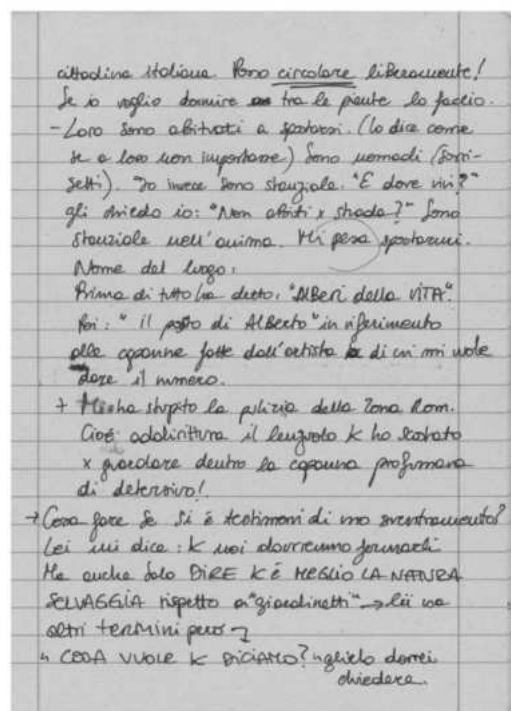 cittadina italiana. Posso circolare liberamente!
Se io voglio dormire tra le piante lo faccio.
- Loro sono abituati a spostarsi. (lo dice come
se a loro non importasse) Sono nomadi (sorri-
setti). Io invece sono stanziale. "E dove vivi?"
gli chiedo io: "Non abiti x strada?" Sono
stanziale nell'anima. Mi pesa spostarmi.
Nome del luogo:
Prima di tutto ha detto: "ALBERI della VITA".
Poi: "il posto di ALBERTO" in riferimento
alle capanne fatte dall'artista di cui mi vuole
dare il numero.
+ Mi ha stupito la pulizia della zona Rom.
Cioè addirittura il lenzuolo k ho scostato
x guardare dentro la capanna profumava
di detersivo!
→ Cosa fare se si è testimoni di uno sventramento?
Lei mi dice: k noi dovremmo fermarli
Ma anche solo DIRE K È MEGLIO LA NATURA
SELVAGGIA rispetto ai "giardinetti" → lei usa
altri termini però
COSA VUOLE K DICIAMO? glielo dovrei
chiedere.